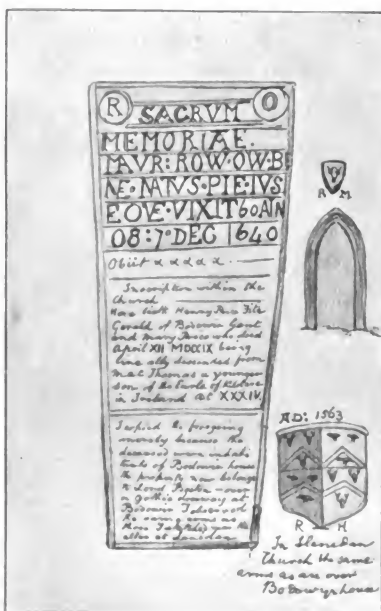 R SACRVM O
MEMORIAE.
MAVR: ROW·OW·B
NE·NATVS·PIE·IVS
EQVE·VIXIT 60 A\N
08:7·DEC 1640
Obiit
Inscription within the
Church
Here lieth Henry Fitz
Gerald of Bodowir Gent
and Mary who died
April XII MDCCIX being
lineally descended from
Thomas a younger
son of the Earle of Kildare
in Ireland AEt XXXIV.
I copied the foregoing
merely because the
deceased were inhabi
tants of Bodowir house
the property now belongs
to Lord Boston over
a Gothic doorway at
Bodowir I observed
the same arms as
those I sketched near the
altar at Llanedan
R M
AD: 1563
R H
In Llanedan
Church the same
arms as are over
Bodowyrhouse